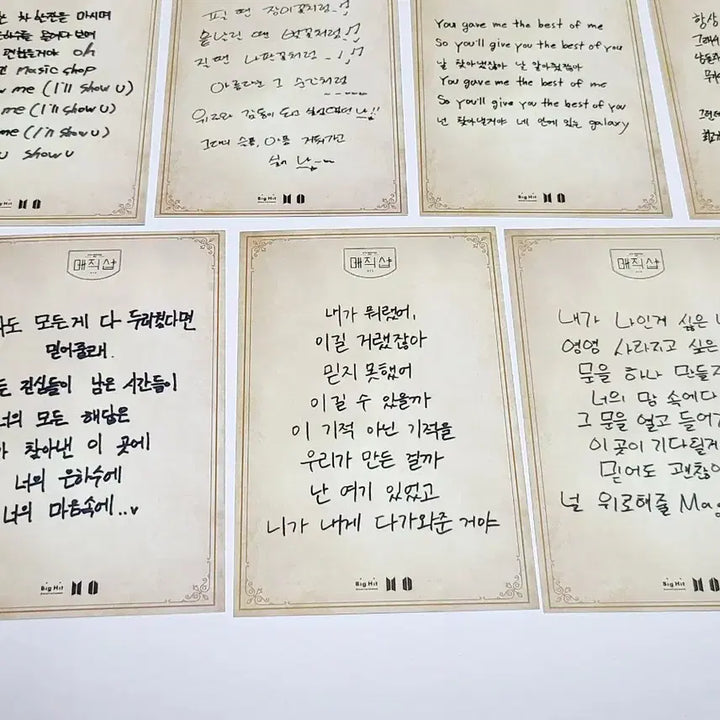 차 한잔을 마시며
은하수를 올려다 보며
괜찮을거야 oh
Magic shop
me (I'll show U)
me (I'll show U)
me (I'll show U)
show U
필 땐 장미꽃처럼
흩날릴 땐 벚꽃처럼
질 땐 나팔꽃처럼
아름다운 그 순간처럼
Big Hit
You gave me the best of me
So you'll give you the best of you
날 찾아냈잖아 날 알아줬잖아
You gave me the best of me
So you'll give you the best of you
넌 찾아낼거야 네 안에 있는 galaxy
Big Hit
항상
매직샵
모든게 다 두려웠다면
믿어줄래.
진실들이 남은 시간들이
너의 모든 해답은
찾아낸 이 곳에
너의 은하수에
너의 마음속에..
Big Hit
매직샵
내가 뭐랬어,
이길 거랬잖아
믿지 못했어
이길 수 있을까
이 기적 아닌 기적을
우리가 만든 걸까
난 여기 있었고
니가 내게 다가와준 거야
Big Hit
매직샵
내가 나인게 싫은
영영 사라지고 싶은
문을 하나 만들자
너의 맘 속에다
그 문을 열고 들어가
이 곳이 기다릴게
믿어도 괜찮아
널 위로해줄 Mag
Big Hit